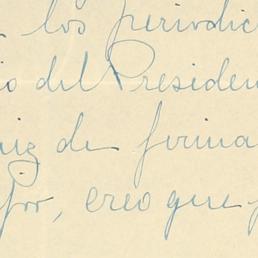 los periodic
io del Presiden
uiz de firma
por, creo que